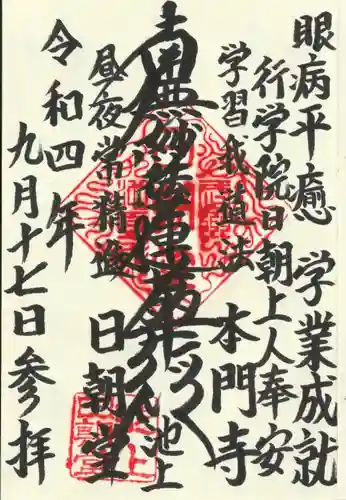 眼病平癒 学業成就
行学院日朝上人奉安
学習我道法 本門寺
南無妙法蓮華経
池上
昼夜常精進 日朝堂
令和四年
九月十七日参拝